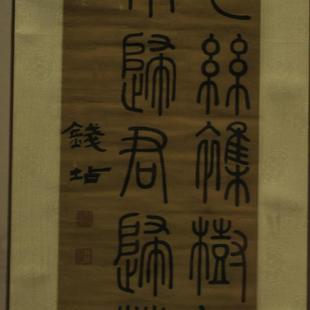 絲雜樹
歸君歸
錢坫